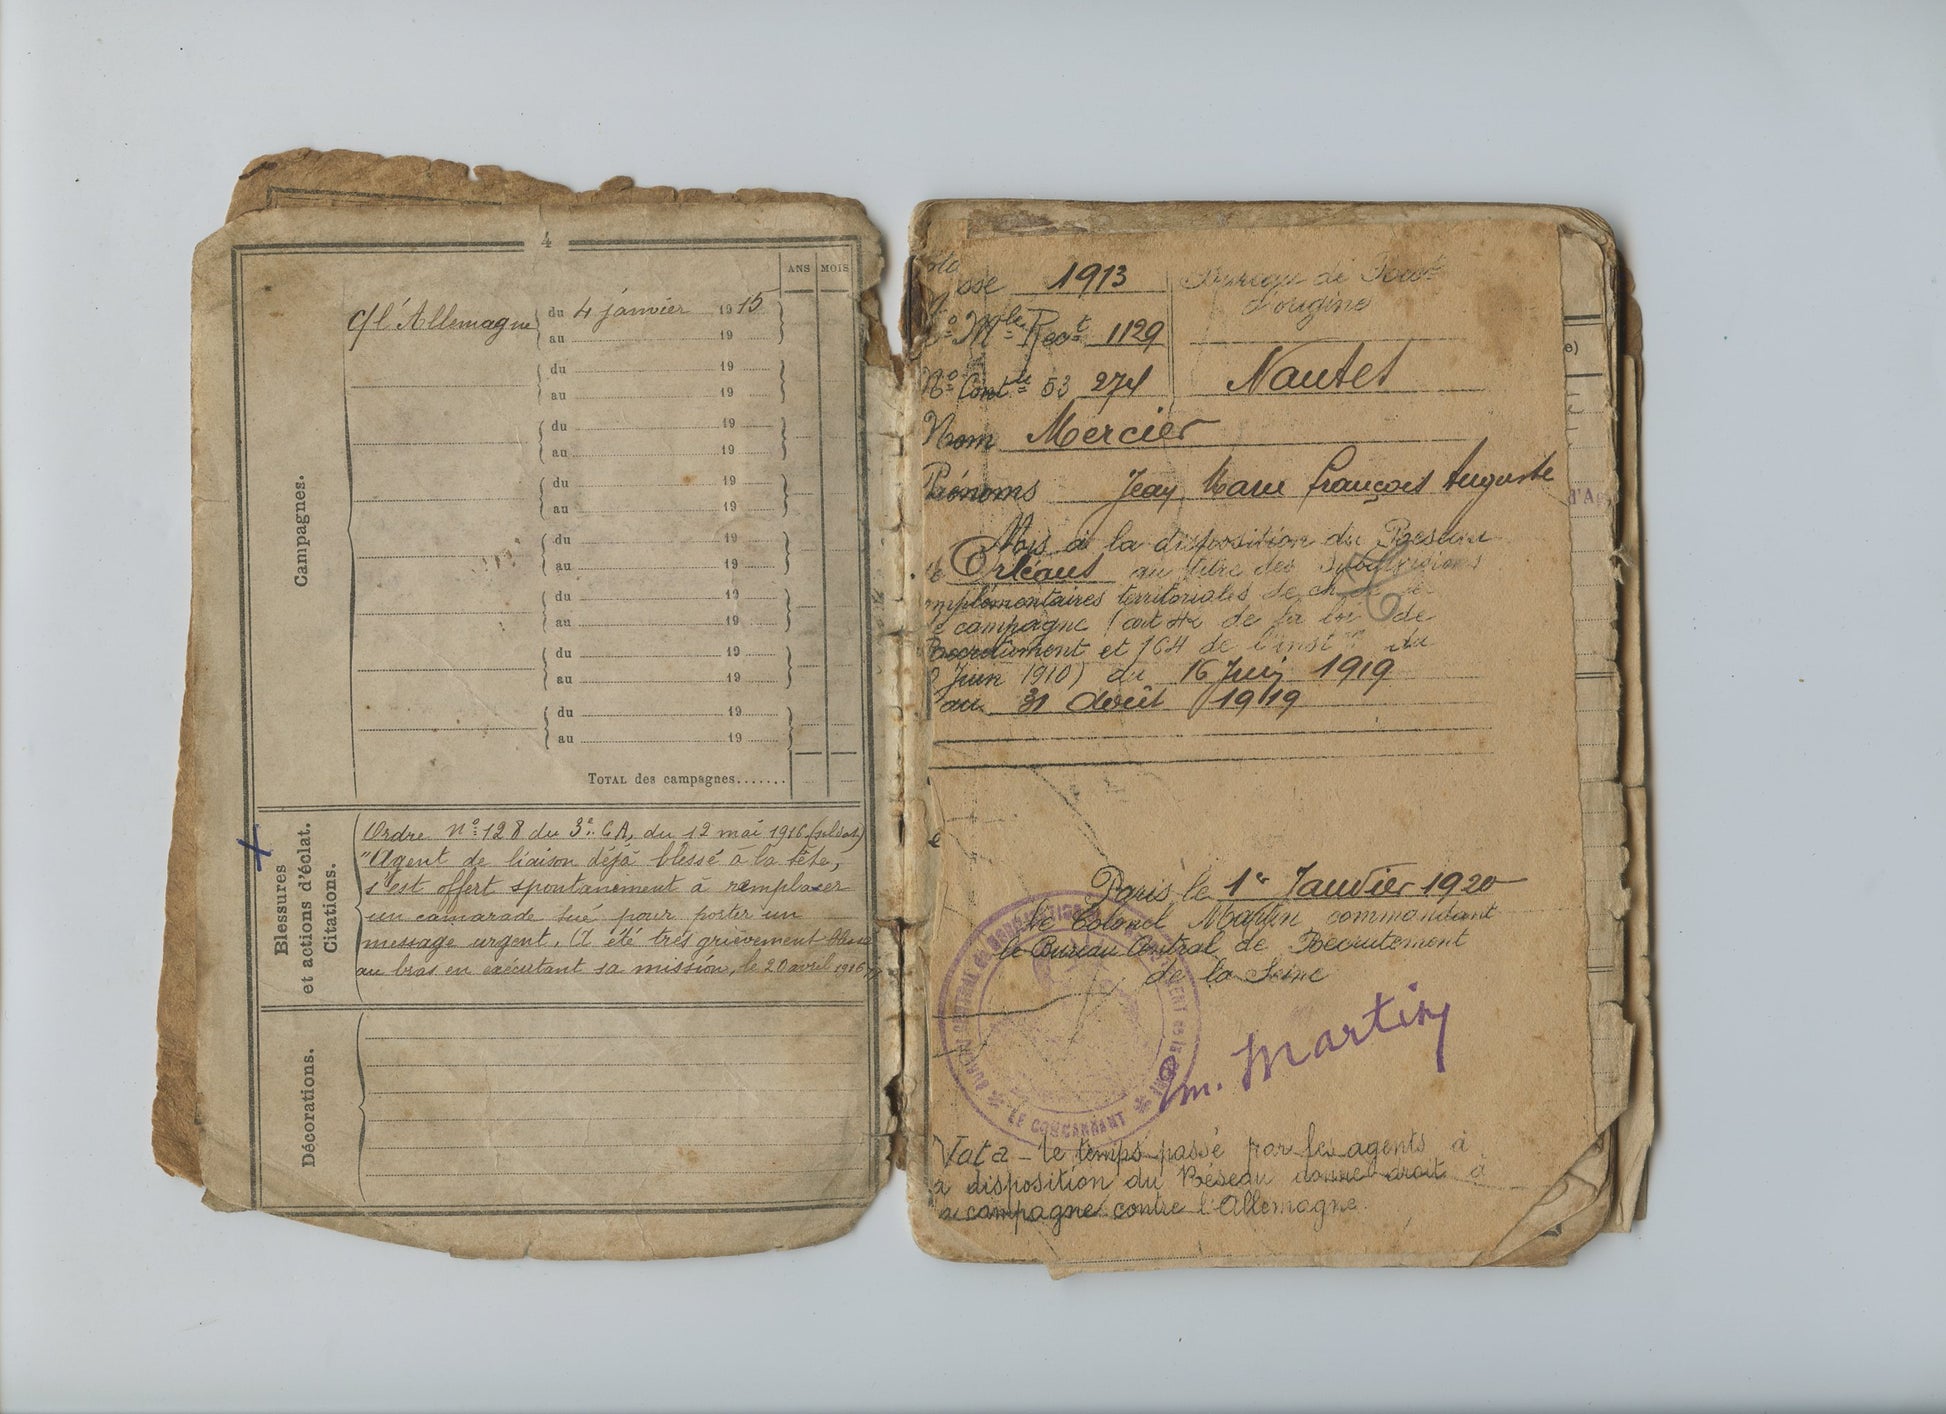 4
ANS MOIS
Campagnes.
c/ l'Allemagne du 4 janvier 1915
au 19
du 19
au 19
du 19
au 19
du 19
au 19
du 19
au 19
du 19
au 19
du 19
au 19
du 19
au 19
TOTAL des campagnes.......
Blessures
et actions d'éclat.
Citations.
Ordre n° 128 du 3e C.A, du 12 mai 1916
"Agent de liaison déjà blessé à la tête,
s'est offert spontanément à remplacer
un camarade tué pour porter un
message urgent. A été très grièvement
au bras en exécutant sa mission, le 20 avril 1916
Décorations.
sse 1913
Bureau de Recrt
d'origine
No Mle Recrt 1129
No Contle 53 274
Nantes
Nom Mercier
Prénoms Jean Marie François Auguste
Mis à la disposition du Réseau
Orléans au titre des Subdivisions
mplémentaires territoriales de ch de
campagne (art 42 de la loi de
Recrutement et 164 de l'instn du
Juin 1910) du 16 Juin 1919
au 31 Août 1919
Paris, le 1er Janvier 1920
Le Colonel Martin commandant
le Bureau Central de Recrutement
de la Seine
BUREAU CENTRAL DE RECRUTEMENT DE LA SEINE
LE COMMANDANT
m. Martin
Nota - le temps passé par les agents à
a disposition du Réseau donne droit à
a campagne contre l'Allemagne.
e)
d'A
e